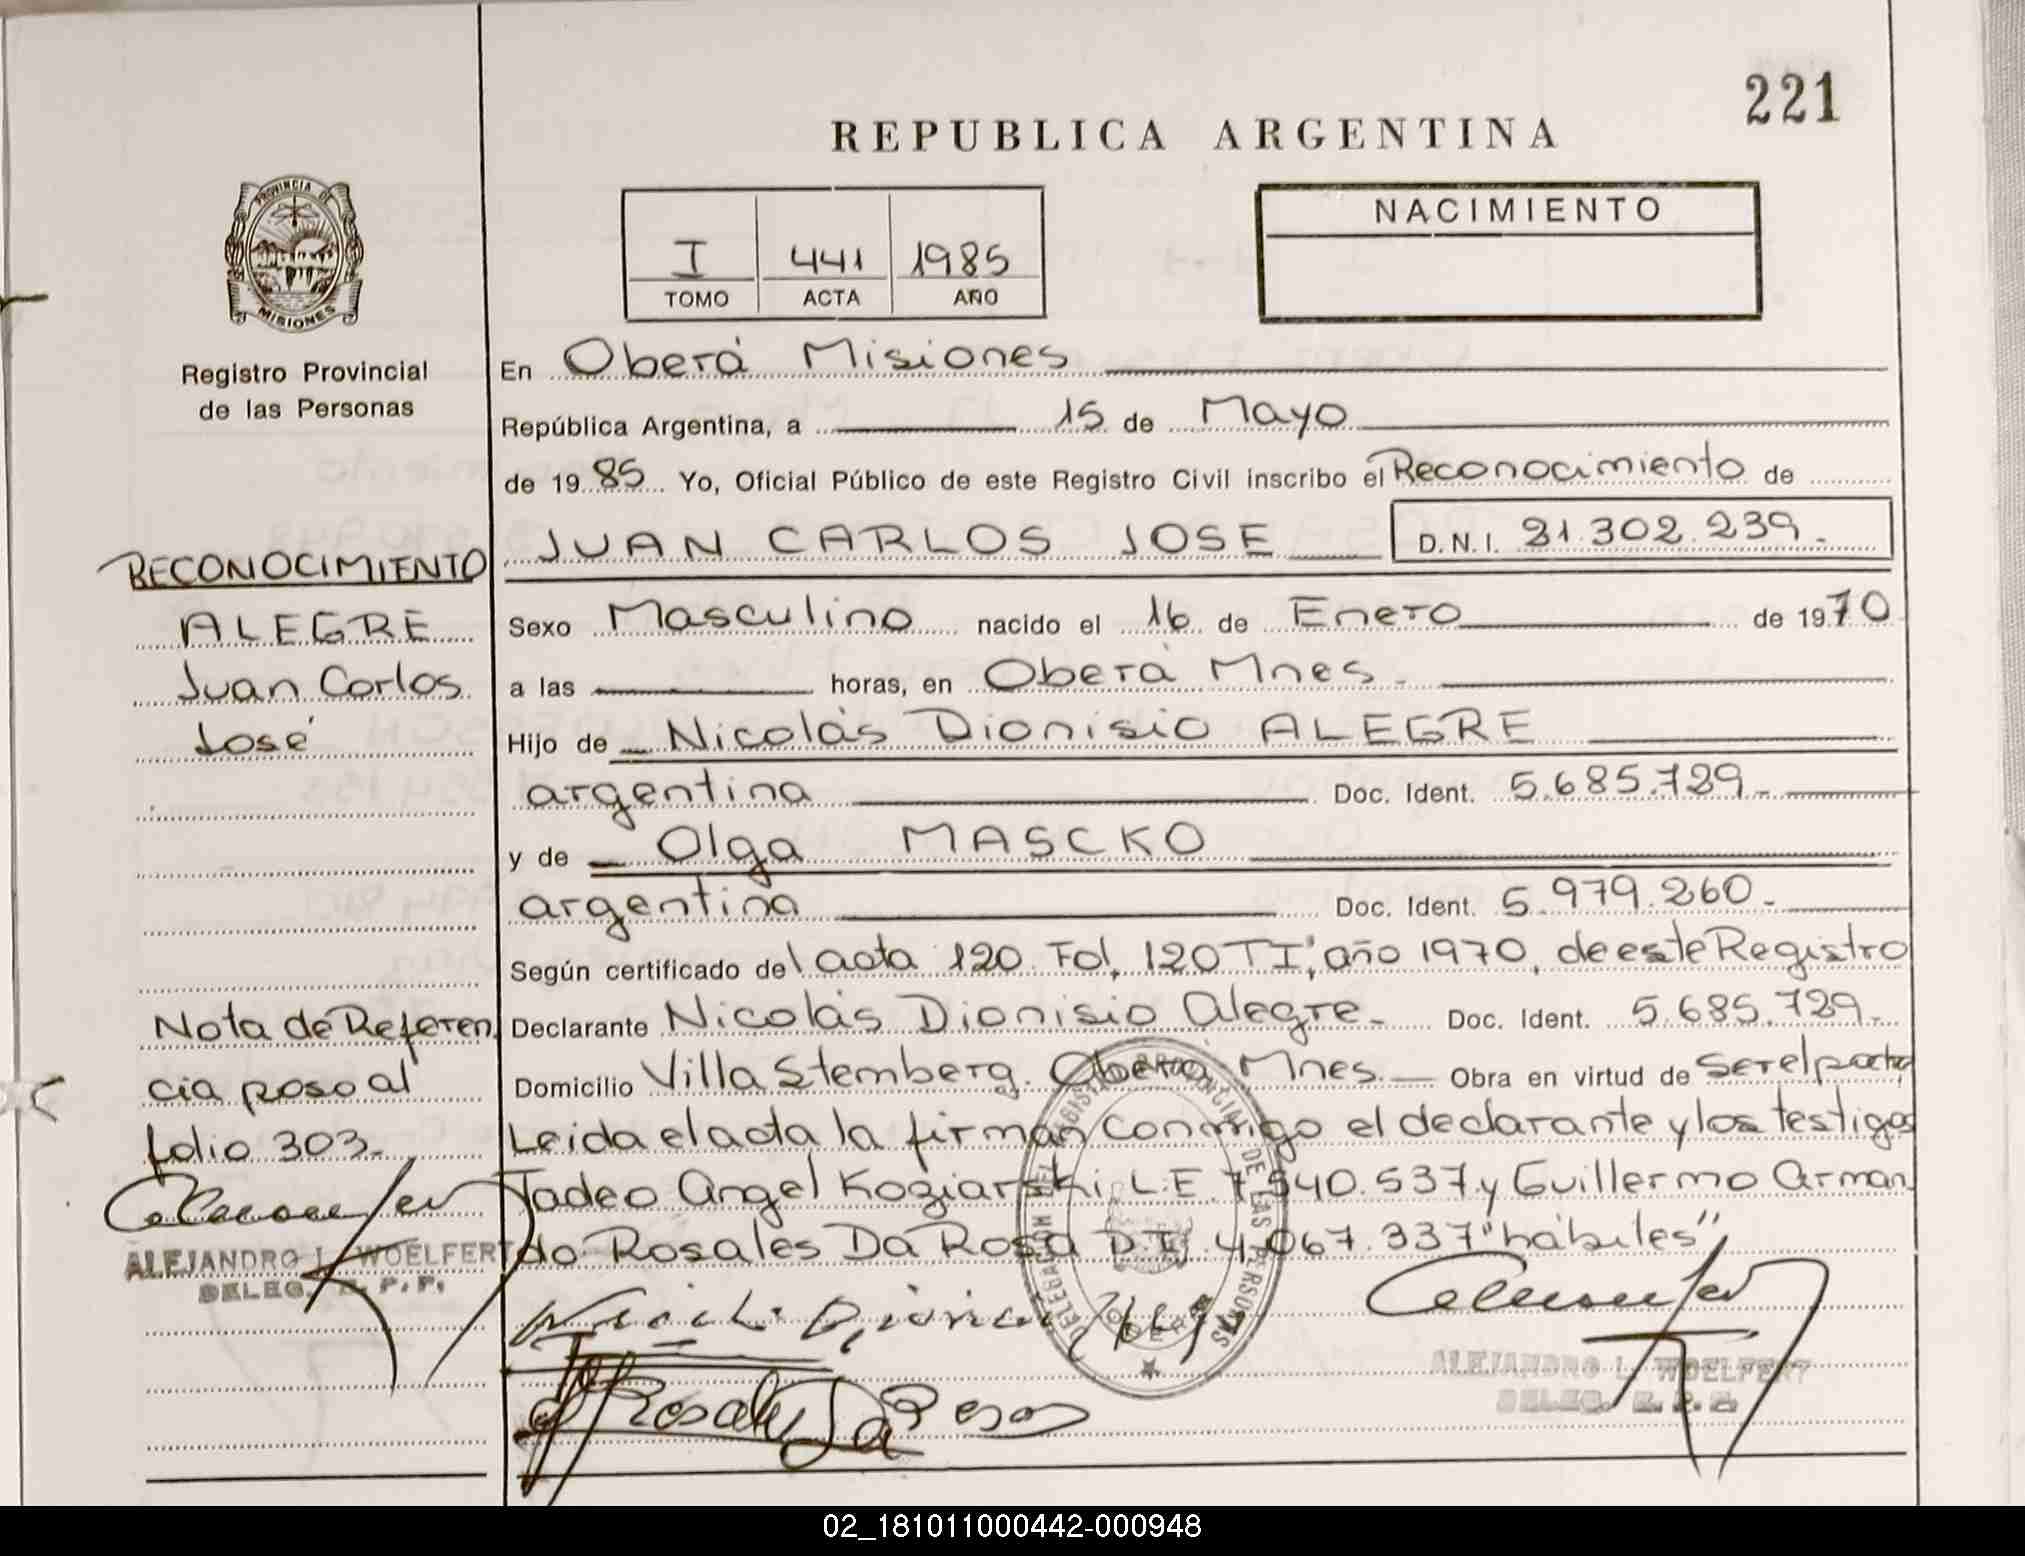 221
REPUBLICA ARGENTINA
PROVINCIA DE
MISIONES
I 441 1985
TOMO ACTA AÑO
NACIMIENTO
Registro Provincial
de las Personas
En Oberá Misiones
República Argentina, a 15 de Mayo
de 1985 Yo, Oficial Público de este Registro Civil inscribo el Reconocimiento de
JUAN CARLOS JOSE D.N.I. 21.302.239.
RECONOCIMIENTO
ALEGRE
Juan Carlos
José
Sexo Masculino nacido el 16 de Enero de 1970
a las horas, en Oberá Mnes.
Hijo de Nicolás Dionisio ALEGRE
argentina Doc. Ident. 5.685.729.
y de Olga MASCKO
argentina Doc. Ident. 5.979.260.
Según certificado del acta 120 Fol. 120 TI, año 1970, de este Registro
Declarante Nicolás Dionisio Alegre. Doc. Ident. 5.685.729.
Domicilio Villa Stemberg. Oberá Mnes. Obra en virtud de Ser el padre
Leida el acta la firman conmigo el declarante y los testigos
Tadeo Angel Koziarski L.E 7.540.537 y Guillermo Arman
do Rosales Da Rosa D.I. 4.067.337 "hábiles"
Nota de Referen
cia paso al
folio 303.
ALEJANDRO L. WOELFERT
DELEG. R. P. P.
ALEJANDRO L. WOELFERT
DELEG. R. P. P.
02_181011000442-000948